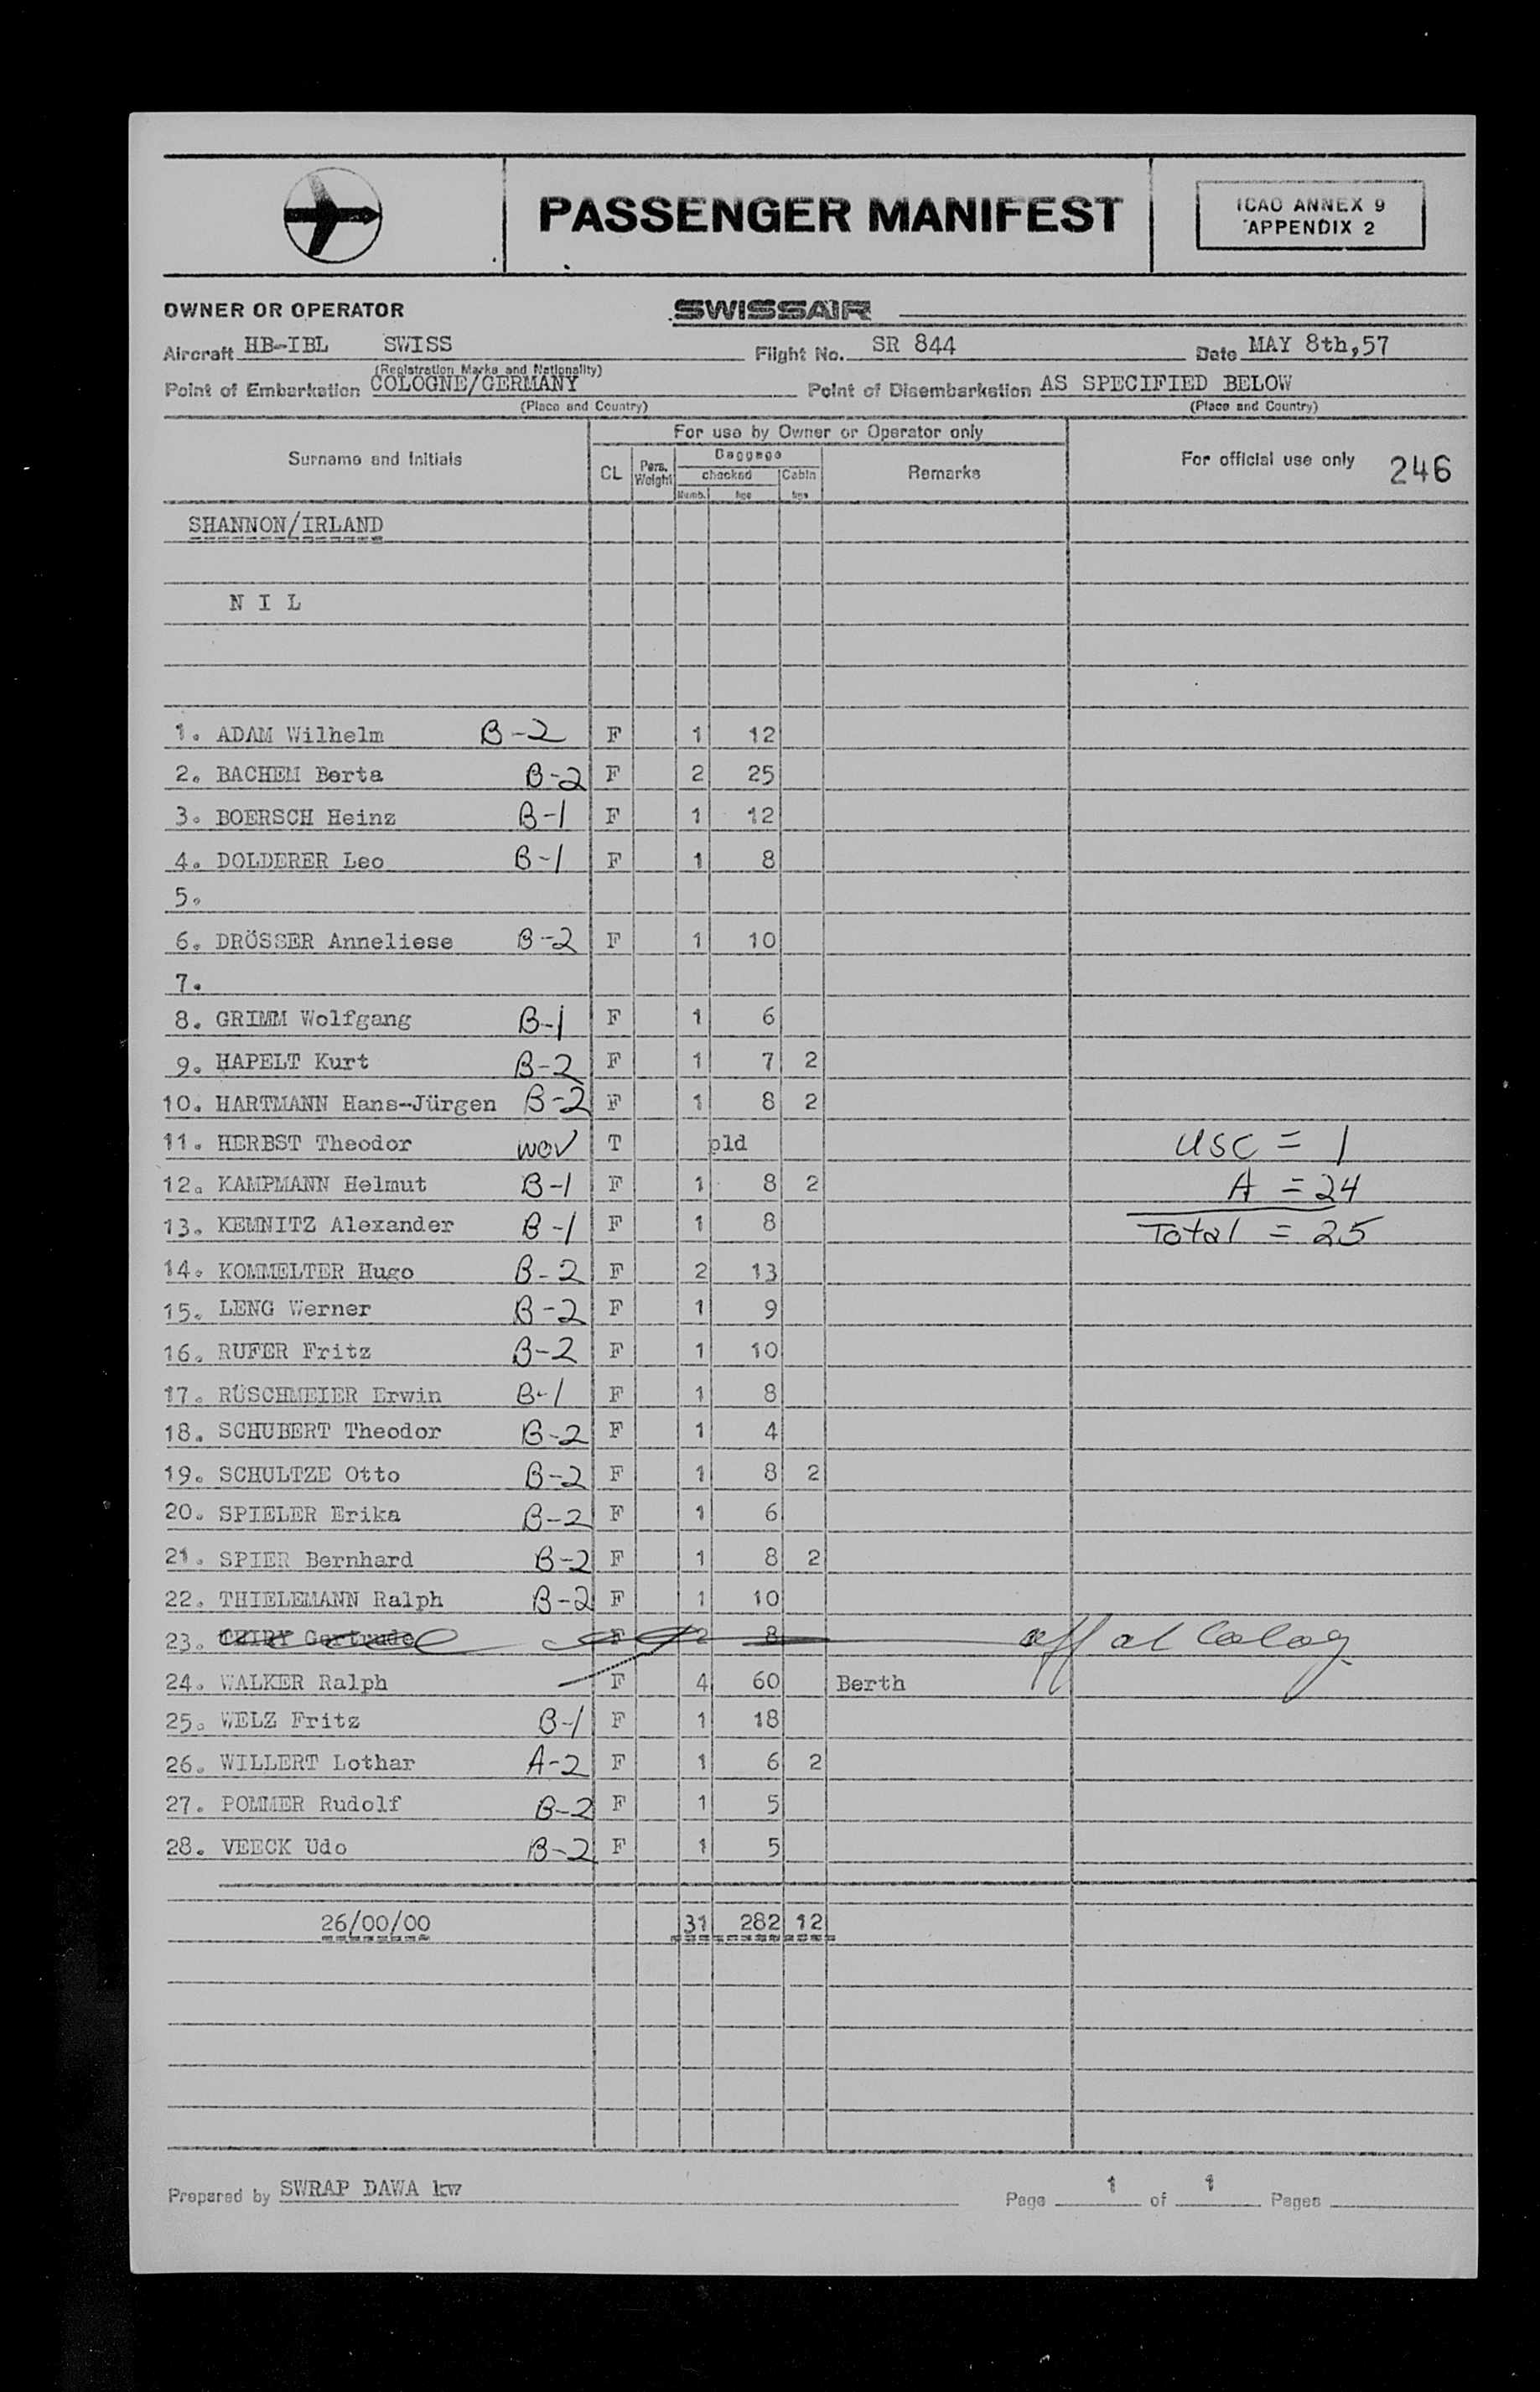 PASSENGER MANIFEST
ICAO ANNEX 9
APPENDIX 2
OWNER OR OPERATOR SWISSAIR
Aircraft HB-IBL SWISS Flight No. SR 844 Date MAY 8th,57
(Registration Marks and Nationality)
Point of Embarkation COLOGNE/GERMANY Point of Disembarkation AS SPECIFIED BELOW
(Place and Country) (Place and Country)
For use by Owner or Operator only
Surname and Initials CL Pers. Weight Baggage checked Numb. kgs Cabin kgs Remarks For official use only 246
SHANNON/IRLAND
N I L
1. ADAM Wilhelm B-2 F 1 12
2. BACHEM Berta B-2 F 2 25
3. BOERSCH Heinz B-1 F 1 12
4. DOLDERER Leo B-1 F 1 8
5.
6. DRÖSSER Anneliese B-2 F 1 10
7.
8. GRIMM Wolfgang B-1 F 1 6
9. HAPELT Kurt B-2 F 1 7 2
10. HARTMANN Hans-Jürgen B-2 F 1 8 2
11. HERBST Theodor T pld USC = 1
12. KAMPMANN Helmut B-1 F 1 8 2 A = 24
13. KEMNITZ Alexander B-1 F 1 8 Total = 25
14. KOMMELTER Hugo B-2 F 2 13
15. LENG Werner B-2 F 1 9
16. RUFER Fritz B-2 F 1 10
17. RÜSCHMEIER Erwin B-1 F 1 8
18. SCHUBERT Theodor B-2 F 1 4
19. SCHULTZE Otto B-2 F 1 8 2
20. SPIELER Erika B-2 F 1 6
21. SPIER Bernhard B-2 F 1 8 2
22. THIELEMANN Ralph B-2 F 1 10
23. Gertrude F 2 8 off at Colog
24. WALKER Ralph F 4 60 Berth
25. WELZ Fritz B-1 F 1 18
26. WILLERT Lothar A-2 F 1 6 2
27. POMMER Rudolf B-2 F 1 5
28. VEECK Udo B-2 F 1 5
26/00/00 31 282 12
Prepared by SWRAP DAWA kw Page 1 of 1 Pages